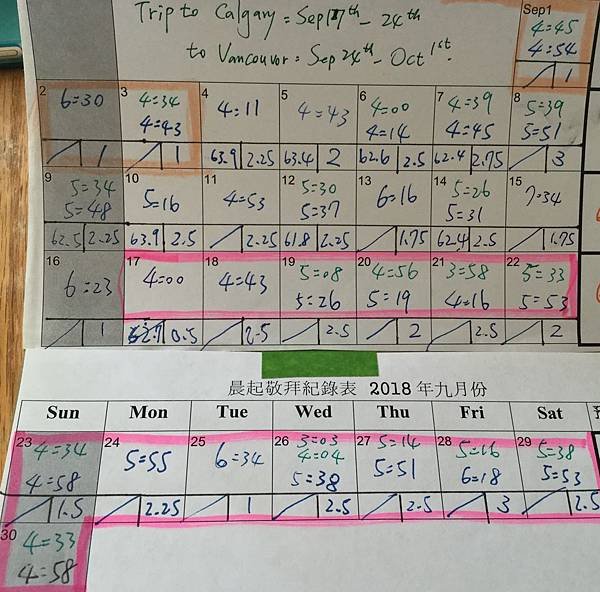 Trip to Calgary = Sep 17th - 24th
to Vancouver = Sep 24th - Oct 1st.
Sep 1
4=45
4=54
1
2 3 4 5 6 7 8
6=30 4=34 4=11 4=43 4=00 4=39 5=39
4=43 4=14 4=45 5=51
1 1 63.9 2.25 63.4 2 62.6 2.5 62.4 2.75 3
9 10 11 12 13 14 15
5=34 5=16 4=53 5=30 6=16 5=26 7=34
5=48 5=37 5=31
62.5 2.25 63.9 2.5 2.25 61.8 2.25 1.75 62.4 2.5 1.75
16 17 18 19 20 21 22
6=23 4=00 4=43 5=08 4=56 3=58 5=33
5=26 5=19 4=16 5=53
1 0.5 2.5 2.5 2 2.5 2
晨起敬拜紀錄表 2018 年九月份
Sun Mon Tue Wed Thu Fri Sat
23 24 25 26 27 28 29
4=34 5=55 6=34 3=03 5=14 5=16 5=38
4=58 4=04 5=51 6=18 5=53
5=38
1.5 2.25 1 2.5 2.5 3 2.5
30
4=33
4=58